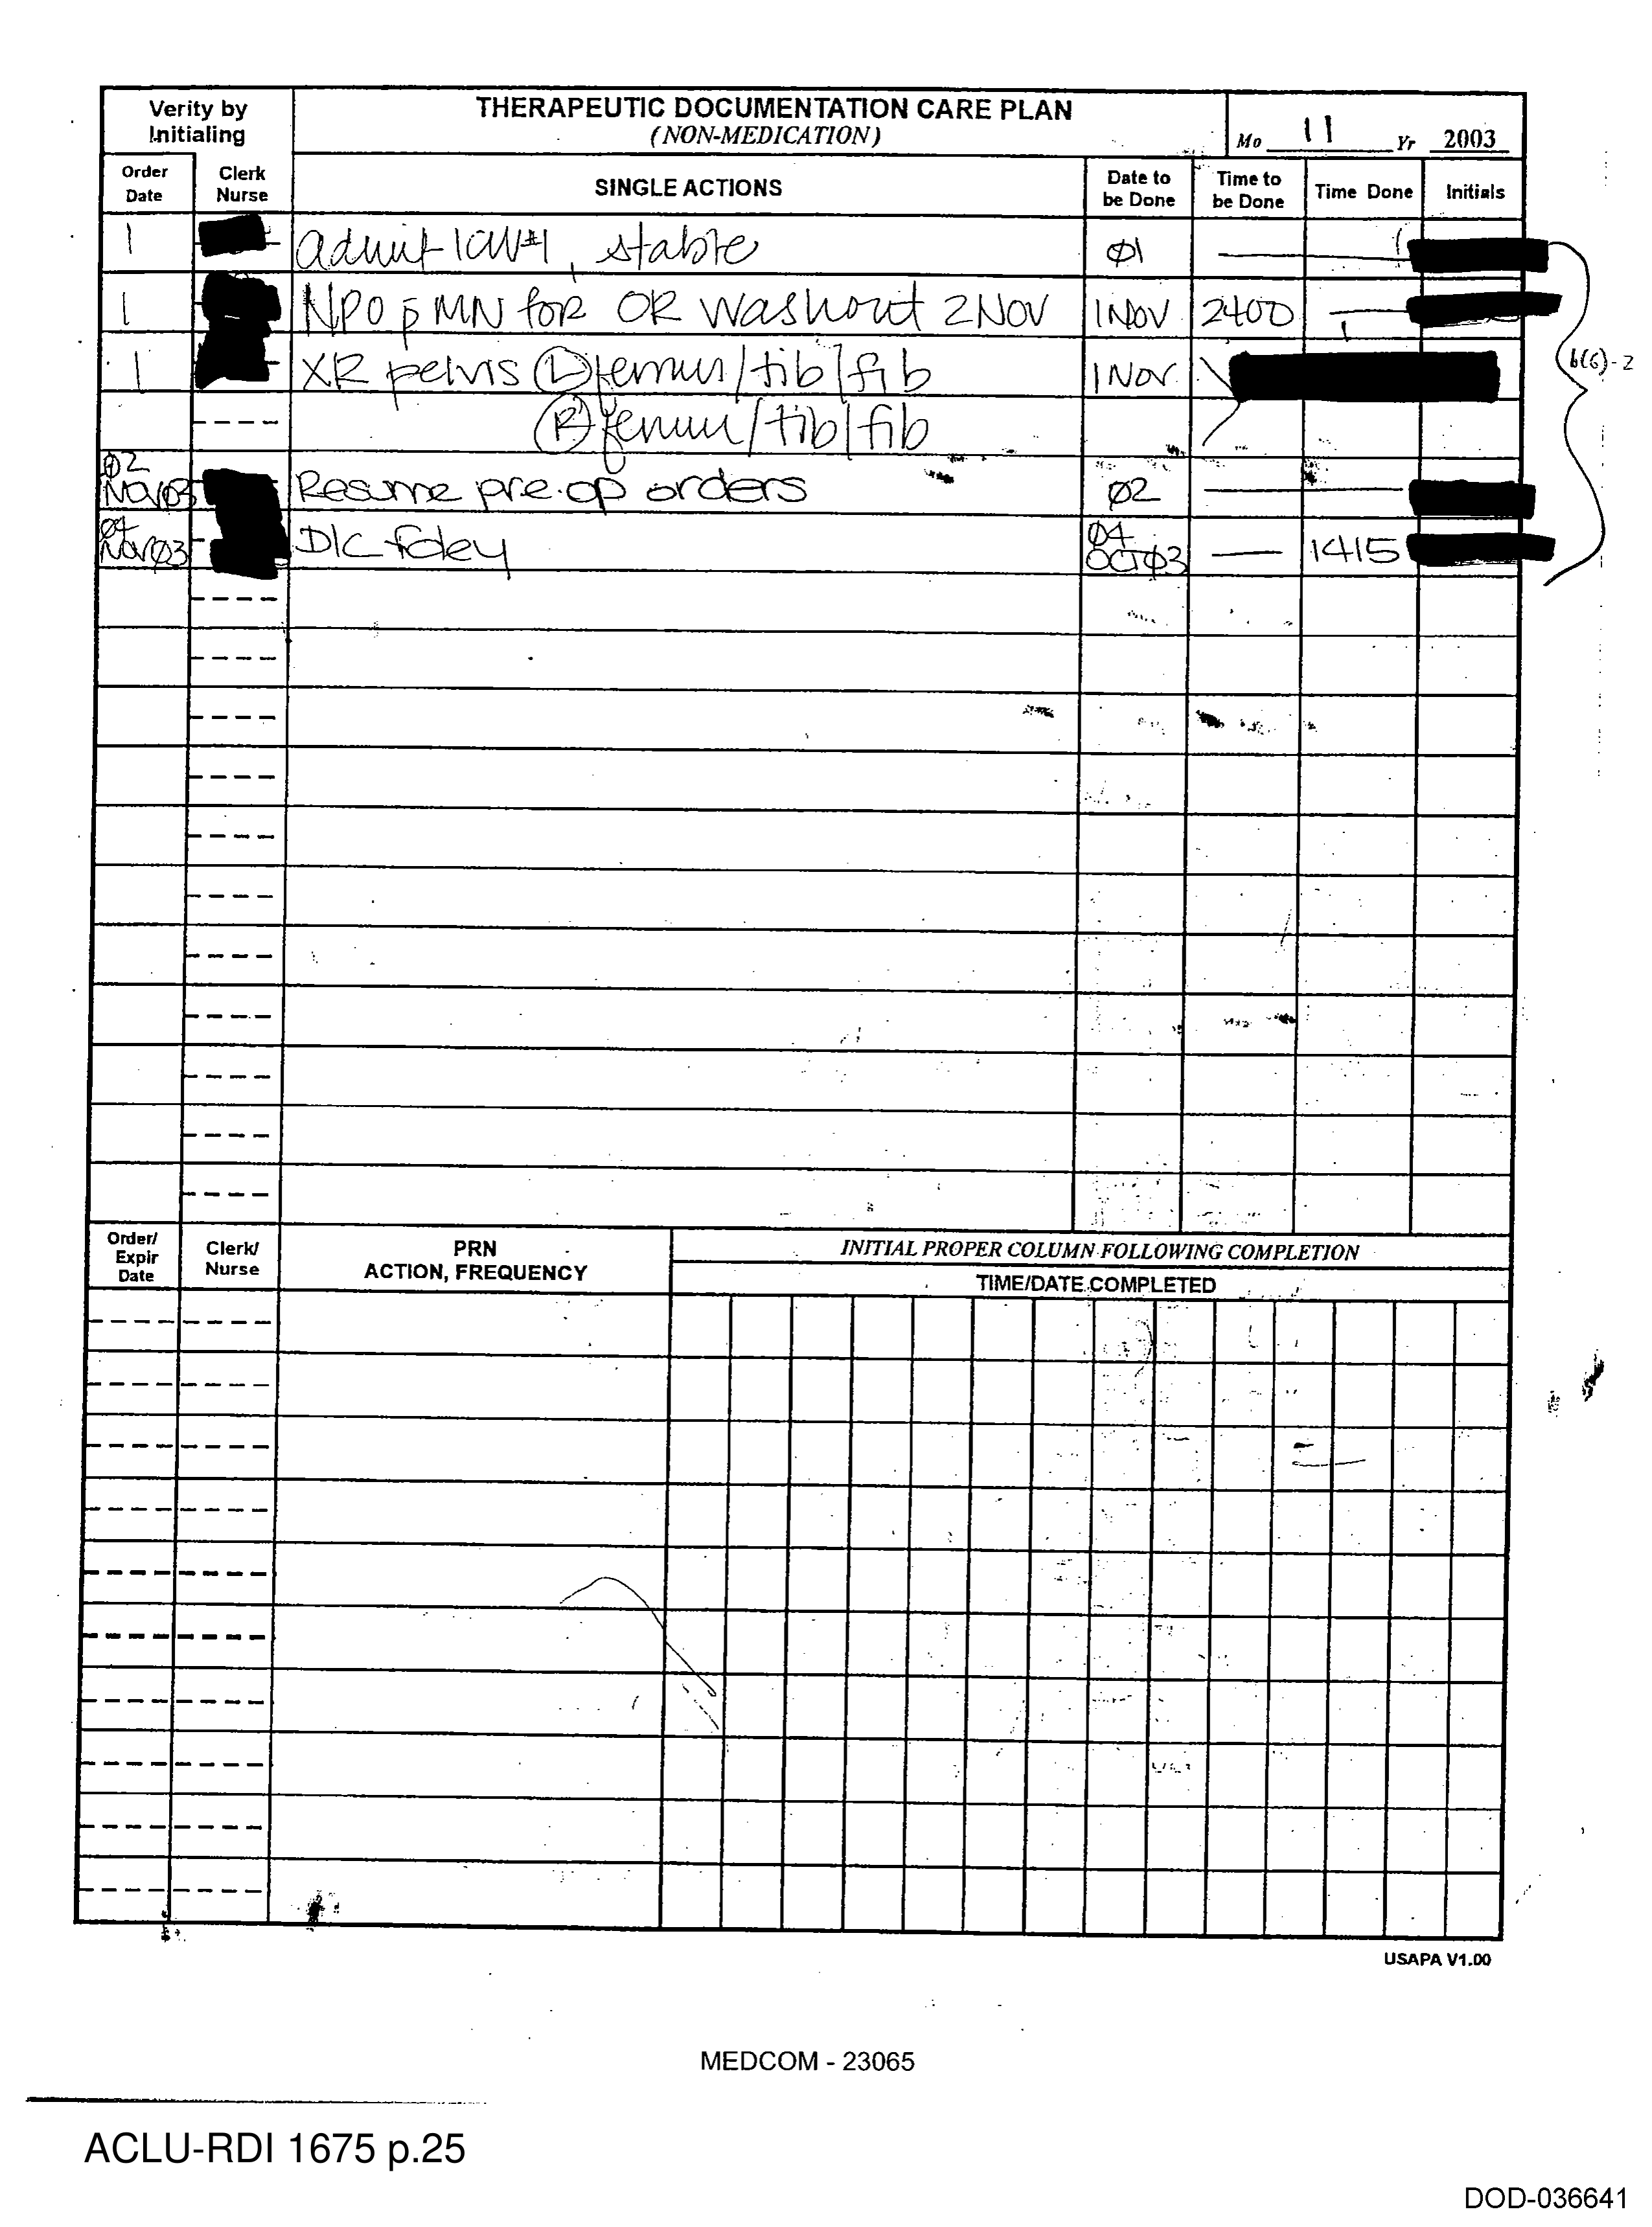 Verity by Initialing
THERAPEUTIC DOCUMENTATION CARE PLAN
(NON-MEDICATION)
Mo 11 Yr 2003
Order Date
Clerk Nurse
SINGLE ACTIONS
Date to be Done
Time to be Done
Time Done
Initials
1 admit ICW#1, stable Ø1
1 NPO p MN for OR washout 2NOV 1NOV 2400
1 XR pelvis (L) femur/tib/fib 1NOV
(R) femur/tib/fib
b(6)-2
Ø2 NOVØ3 Resume pre-op orders Ø2
Ø4 NOVØ3 D/C foley Ø4 OCTØ3 1415
Order/ Expir Date
Clerk/ Nurse
PRN ACTION, FREQUENCY
INITIAL PROPER COLUMN FOLLOWING COMPLETION
TIME/DATE COMPLETED
USAPA V1.00
MEDCOM - 23065
ACLU-RDI 1675 p.25
DOD-036641